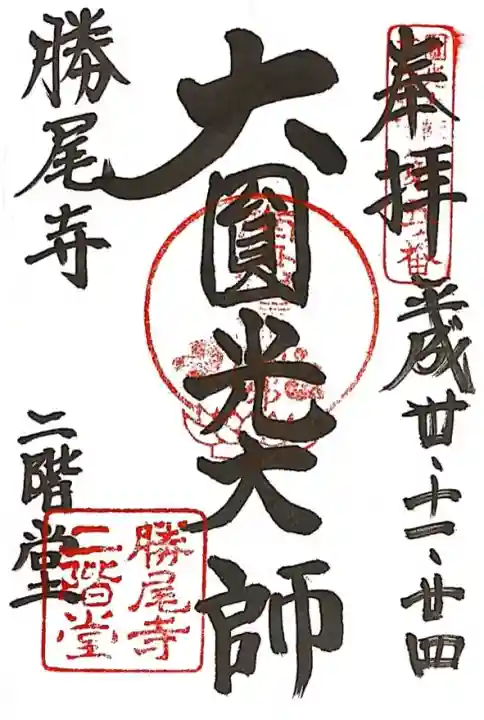 奉拝
歳卅、十一、廿四
大圓光大師
勝尾寺
二階堂
勝尾寺
二階堂